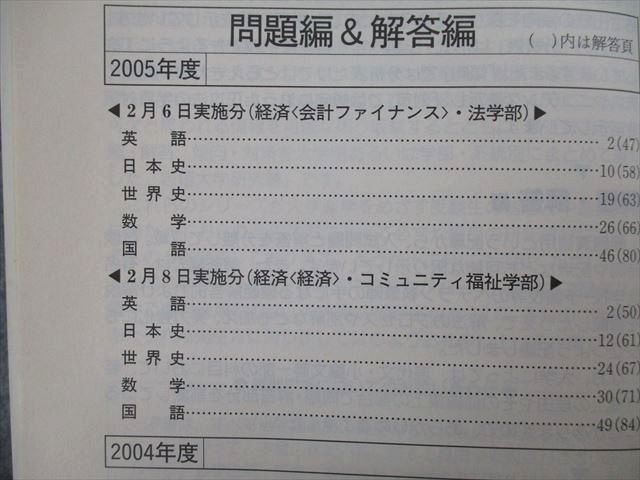 問題編＆解答編 (　)内は解答頁
2005年度
◀2月6日実施分(経済〈会計ファイナンス〉・法学部)▶
英語……2(47)
日本史……10(58)
世界史……19(63)
数学……26(66)
国語……46(80)
◀2月8日実施分(経済〈経済〉・コミュニティ福祉学部)▶
英語……2(50)
日本史……12(61)
世界史……24(67)
数学……30(71)
国語……49(84)
2004年度